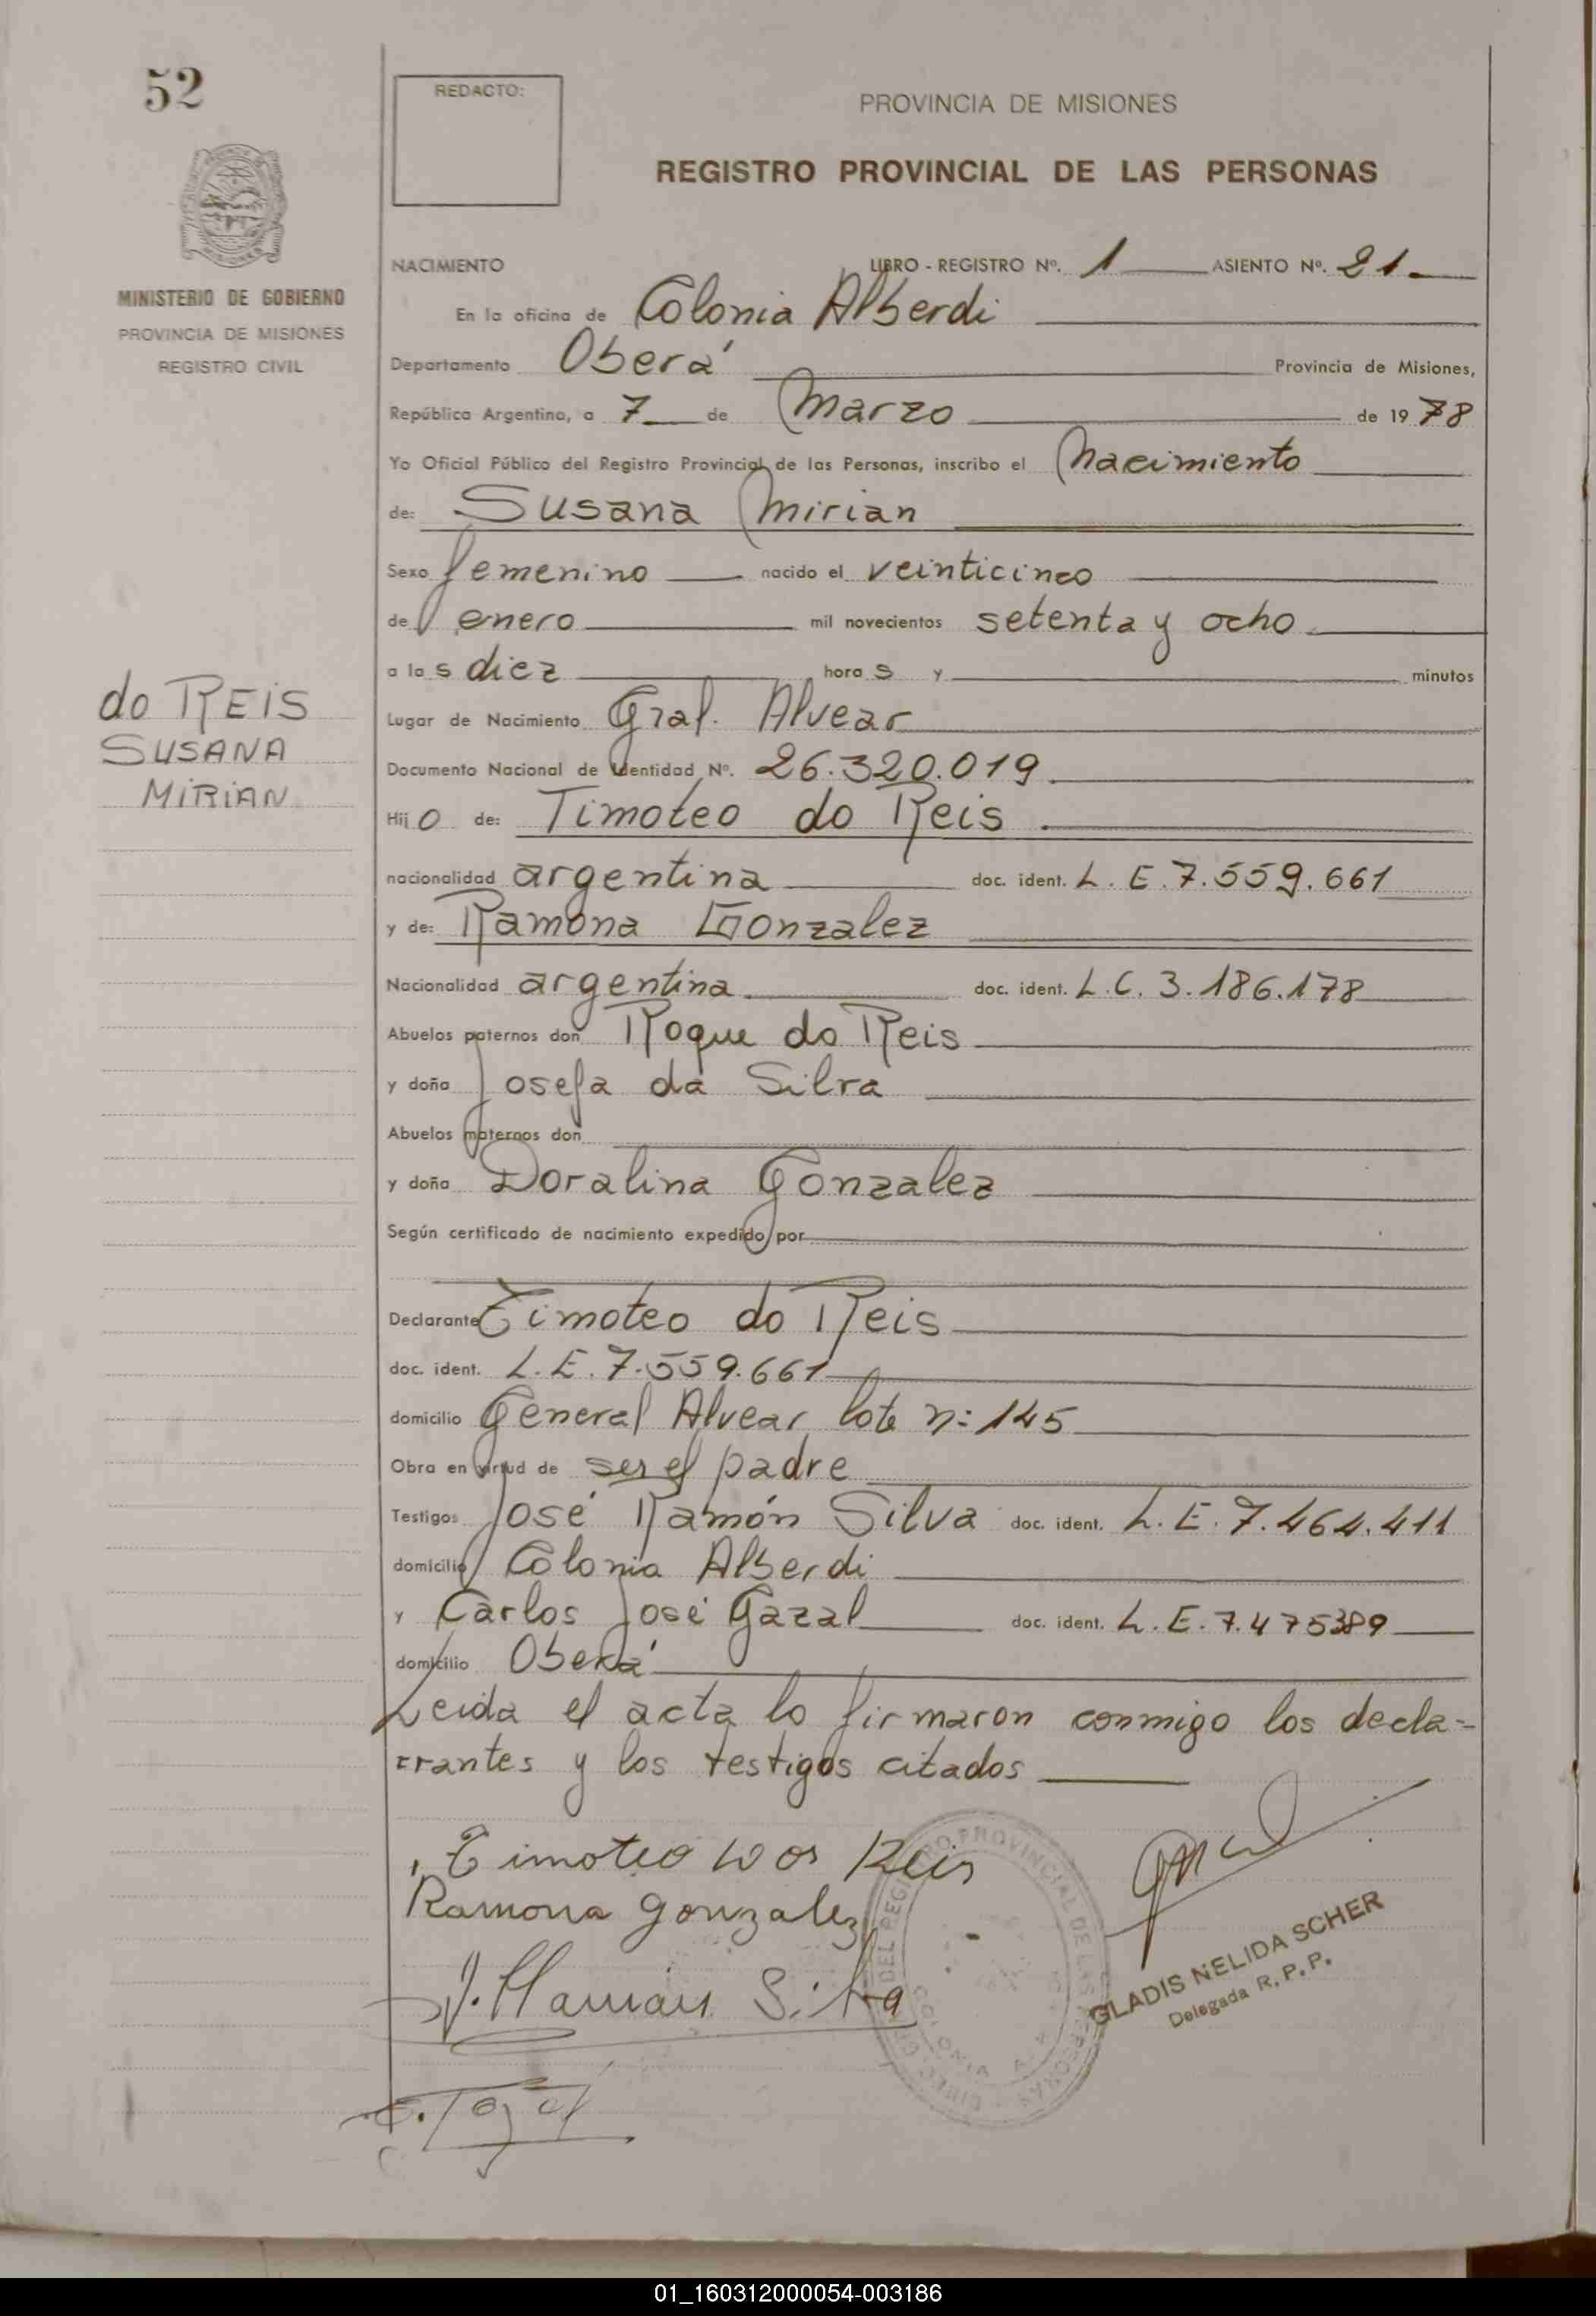 52
REDACTO:
PROVINCIA DE MISIONES
REGISTRO PROVINCIAL DE LAS PERSONAS
MINISTERIO DE GOBIERNO
PROVINCIA DE MISIONES
REGISTRO CIVIL
NACIMIENTO LIBRO - REGISTRO Nº. 1 ASIENTO Nº. 21.
En la oficina de Colonia Alberdi
Departamento Oberá Provincia de Misiones,
República Argentina, a 7 de Marzo de 1978
Yo Oficial Público del Registro Provincial de las Personas, inscribo el Nacimiento
de: Susana Mirian
Sexo femenino nacido el veinticinco
de enero mil novecientos setenta y ocho
a las diez horas y minutos
do REIS
SUSANA
MIRIAN
Lugar de Nacimiento Gral. Alvear
Documento Nacional de Identidad Nº. 26.320.019
Hijo de: Timoteo do Reis
nacionalidad argentina doc. ident. L.E.7.559.661
y de: Ramona Gonzalez
Nacionalidad argentina doc. ident. L.C. 3.186.178
Abuelos paternos don Roque do Reis
y doña Josefa da Silva
Abuelos maternos don
y doña Doralina Gonzalez
Según certificado de nacimiento expedido por
Declarante Timoteo do Reis
doc. ident. L.E.7.559.661
domicilio General Alvear lote n: 145
Obra en virtud de ser el padre
Testigos José Ramón Silva doc. ident. L.E.7.464.411
domicilio Colonia Alberdi
y Carlos José Gazal doc. ident. L.E.7.475389
domicilio Oberá
Leida el acta lo firmaron conmigo los decla=
rrantes y los testigos citados
Timoteo Dos Reis
Ramona Gonzalez
J. Ramón Silva
GLADIS NELIDA SCHER
Delegada R.P.P.
01_160312000054-003186